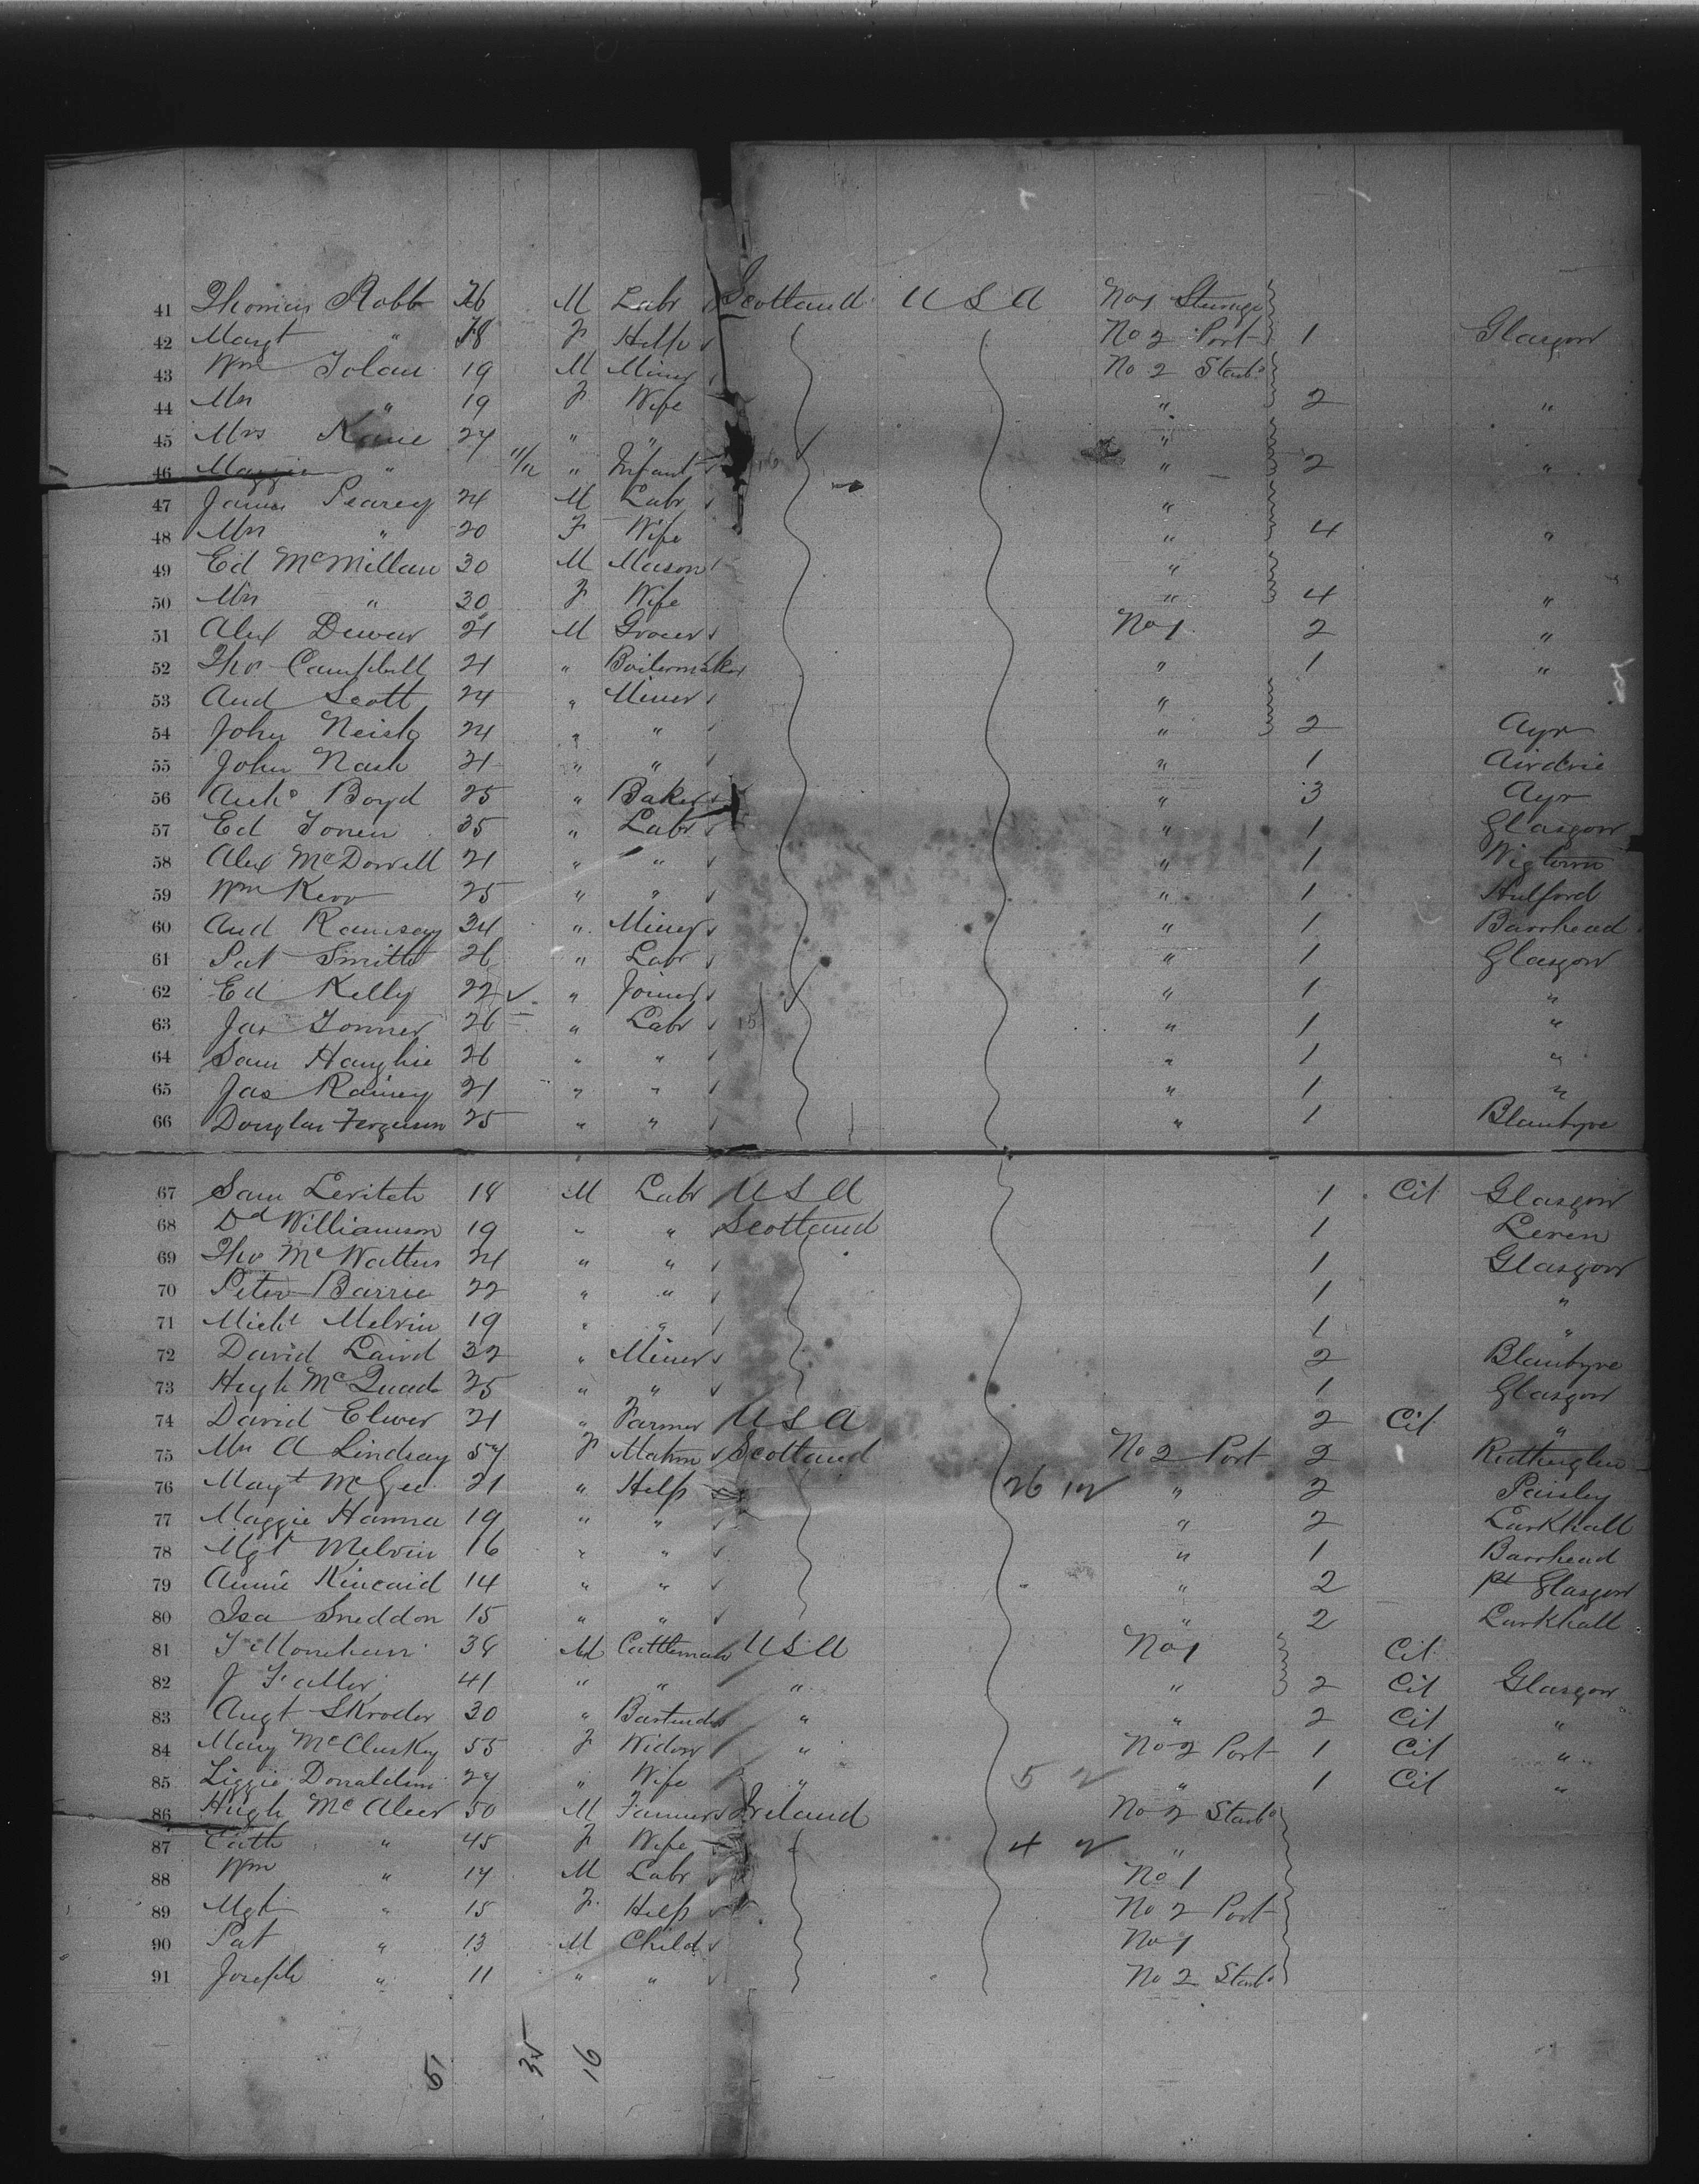 41 Thomas Robb 26 M Labr Scotland U S A No 1 Steerage
42 Margt " 18 F Help No 2 Port 1 Glasgow
43 Wm Tolan 19 M Miner No 2 Starb
44 Mrs " 19 F Wife " 2 "
45 Mrs Kane 24 " " "
46 Maggie " 11/12 " Infant " 2 "
47 James Pearcy 24 M Labr "
48 Mrs " 20 F Wife " 4 "
49 Ed McMillan 30 M Mason "
50 Mrs " 30 F Wife " 4 "
51 Alex Dewar 21 M Grocer No 1 2 "
52 Tho Campbell 21 " Boilermaker " 1 "
53 And Scott 24 " Miner "
54 John Neish 24 " " " 2 Ayr
55 John Nash 21 " " " 1 Airdrie
56 Archd Boyd 25 " Baker " 3 Ayr
57 Ed Jones 35 " Labr " 1 Glasgow
58 Alex McDowell 21 " " " 1 Wigtown
59 Wm Kerr 25 " " " 1 Hulford
60 And Ramsay 34 " Miner " 1 Barrhead
61 Pat Smith 26 " Labr " 1 Glasgow
62 Ed Kelly 22 " Joiner " 1 "
63 Jas Tonner 26 " Labr " 1 "
64 Sam Haughie 26 " " " 1 "
65 Jas Rainey 21 " " " 1 "
66 Douglas Ferguson 25 " " " 1 Blantyre
67 Sam Levitch 18 M Labr U S A 1 Cit Glasgow
68 Dd Williamson 19 " " Scotland 1 Leven
69 Tho McWatters 24 " " 1 Glasgow
70 Peter Barrie 22 " " 1 "
71 Michl Melvin 19 " " 1 "
72 David Laird 32 " Miner 2 Blantyre
73 Hugh McQuade 25 " " 1 Glasgow
74 David Elwer 21 " Farmer U S A 2 Cit "
75 Mrs A Lindsay 57 F Matron Scotland No 2 Port 2 Rutherglen
76 Margt McGee 21 " Help 26 12 " 2 Paisley
77 Maggie Hanna 19 " " " 2 Larkhall
78 Mgt Melvin 16 " " " 1 Barrhead
79 Annie Kincaid 14 " " " 2 Pt Glasgow
80 Isa Sneddon 15 " " " 2 Larkhall
81 T Monehan 38 M Cattleman U S A No 1 Cit
82 J 41 " " " " 2 Cit Glasgow
83 Augt Skroder 30 " Bartender " " 2 Cit "
84 Mary McClusky 55 F Widow " No 2 Port 1 Cit "
85 Lizzie Donaldson 27 " Wife " 5 2 " 1 Cit "
86 Hugh McAleer 50 M Farmer Ireland No 2 Starb
87 Cath " 45 F Wife 4 2 "
88 Wm " 17 M Labr No 1
89 Mgt " 15 F Help No 2 Port
90 Pat " 13 M Child No 1
91 Joseph " 11 " " No 2 Starb
51 35 16